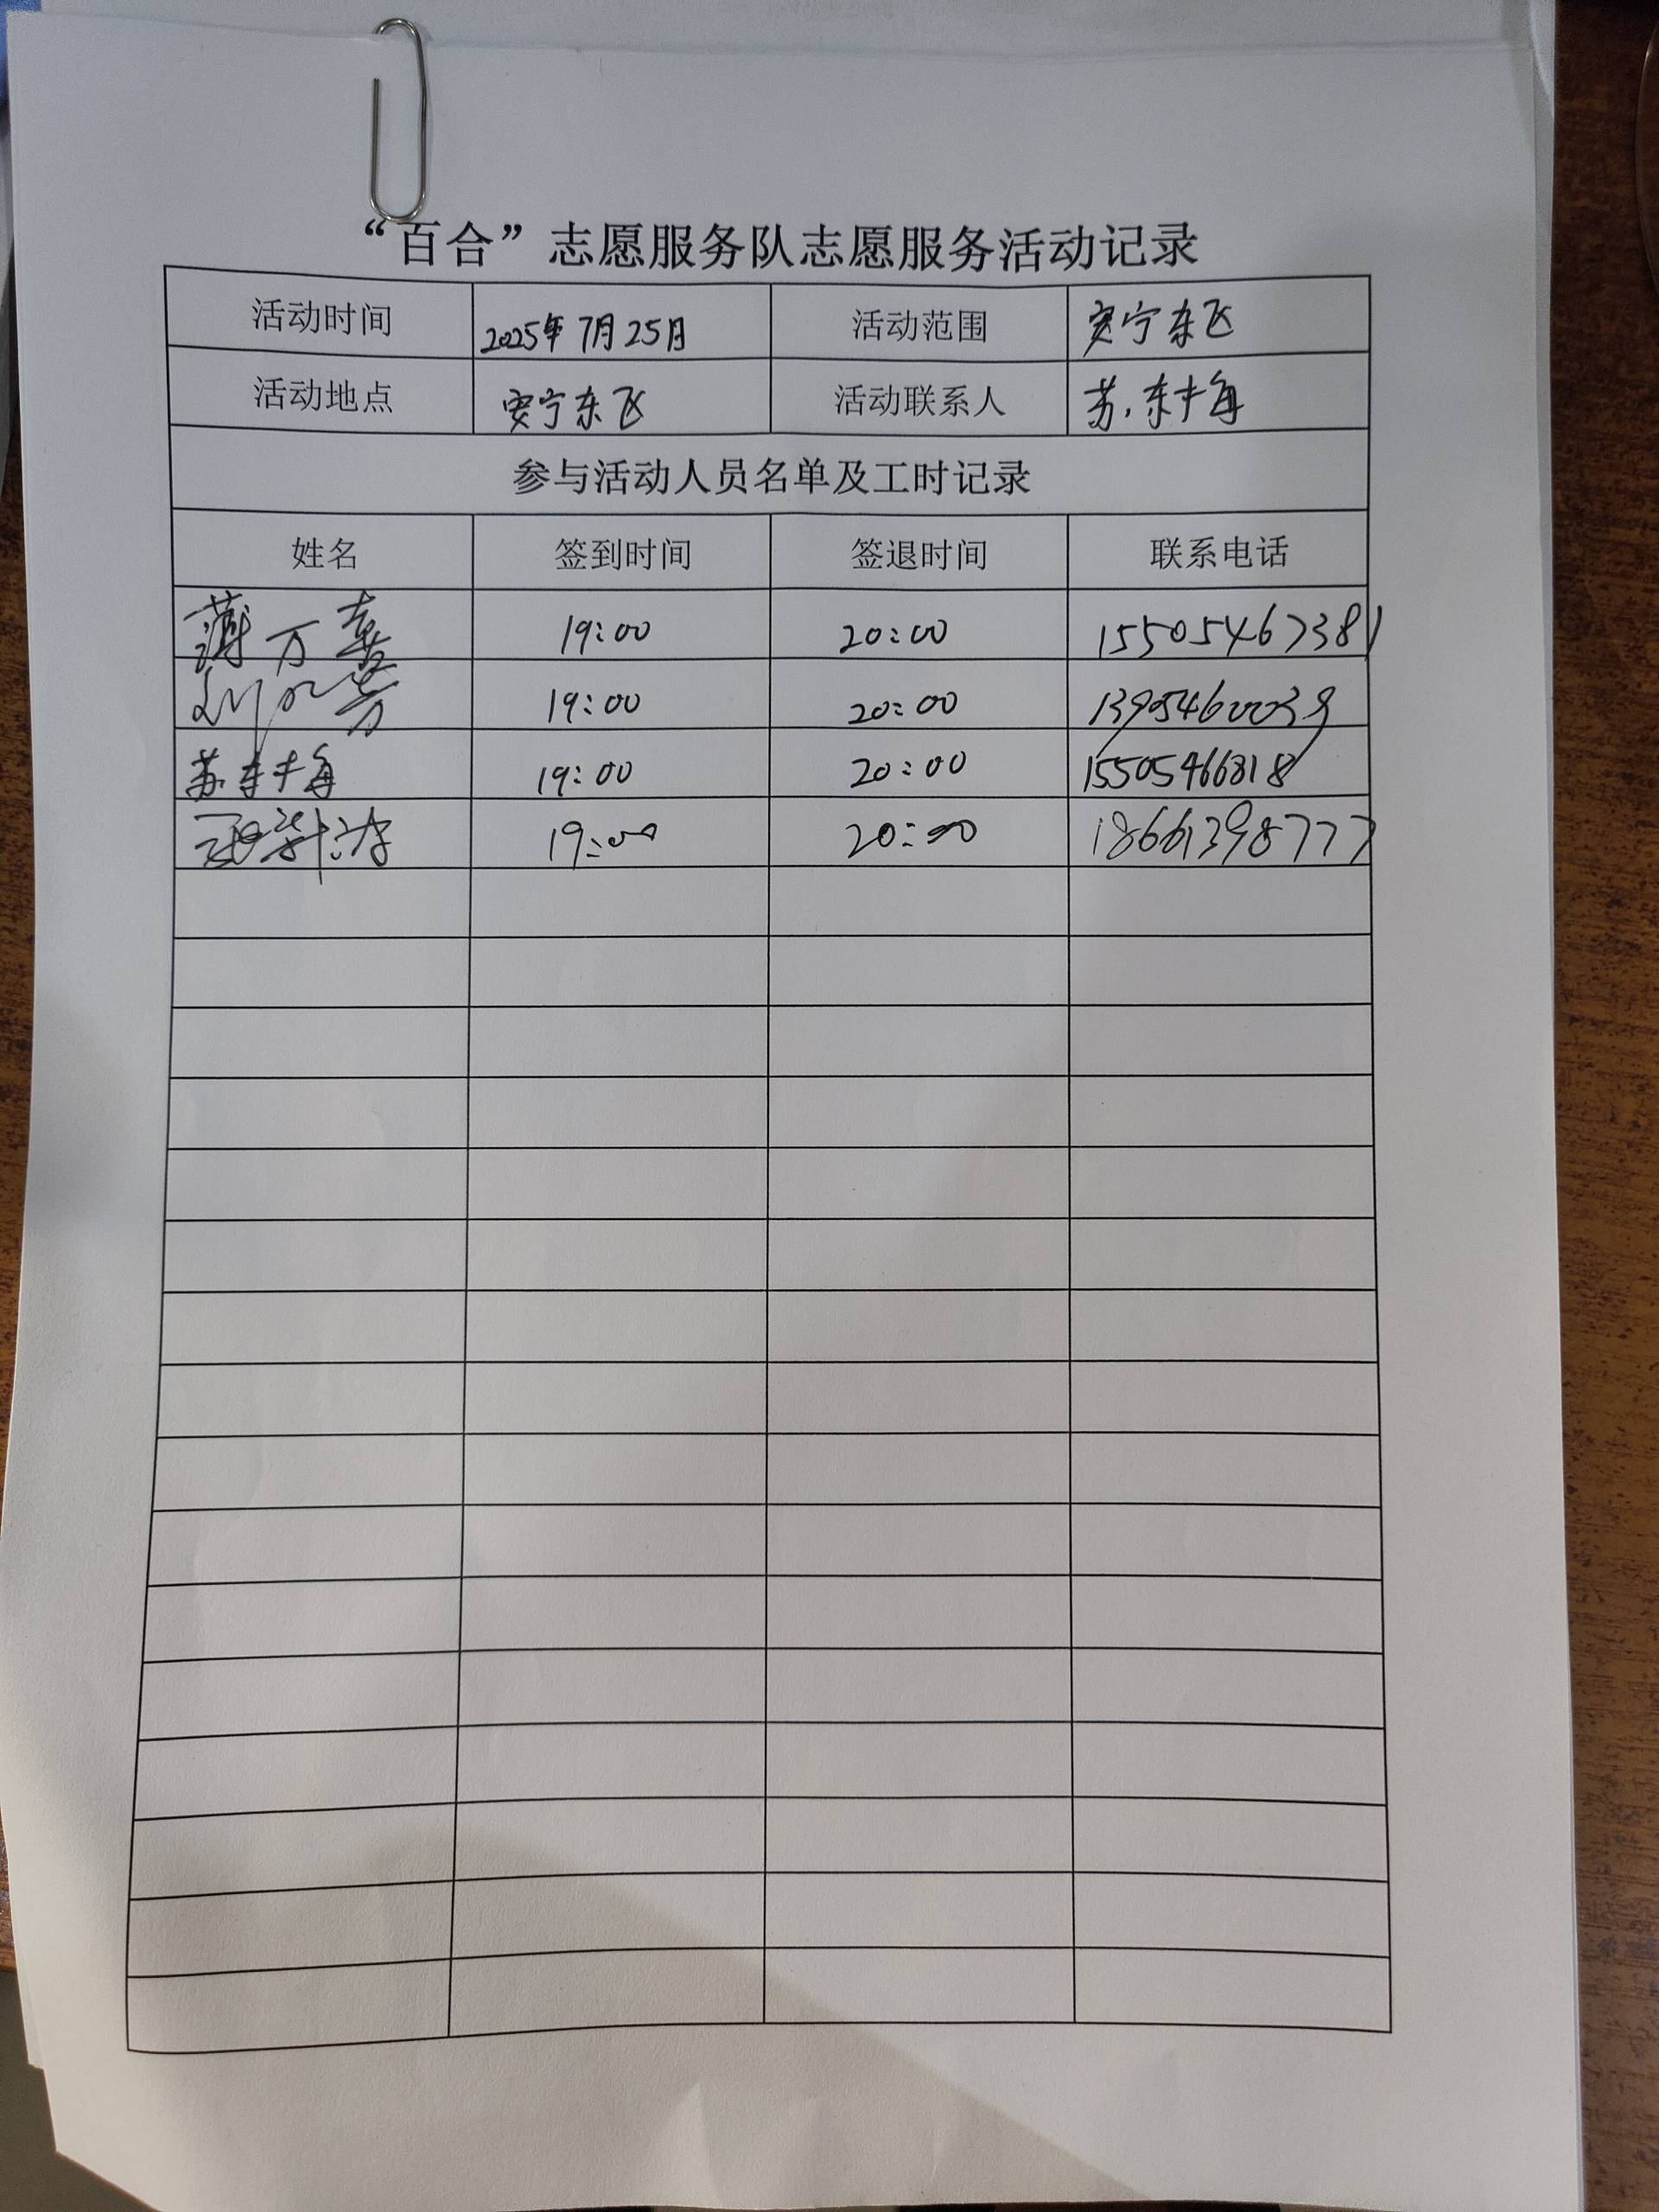 “百合”志愿服务队志愿服务活动记录
活动时间 2025年7月25日 活动范围 宁东飞
活动地点 宁东飞 活动联系人 苏东海
参与活动人员名单及工时记录
姓名 签到时间 签退时间 联系电话
薄万喜 19:00 20:00 15505467381
刘 芳 19:00 20:00 13905460039
苏东海 19:00 20:00 15505466818
19:00 20:00 18661398777